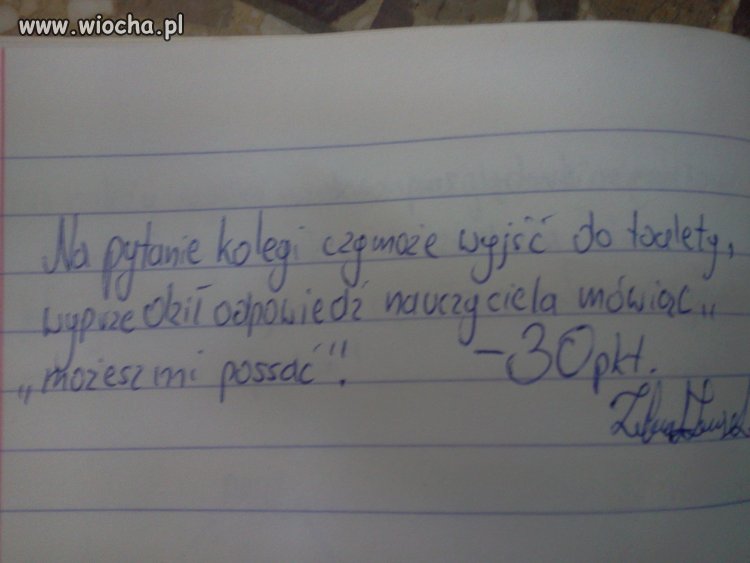 www.wiocha.pl
Na pytanie kolegi czy może wyjść do toalety,
wyprzedził odpowiedź nauczyciela mówiąc „
„możesz mi possać". -30 pkt.